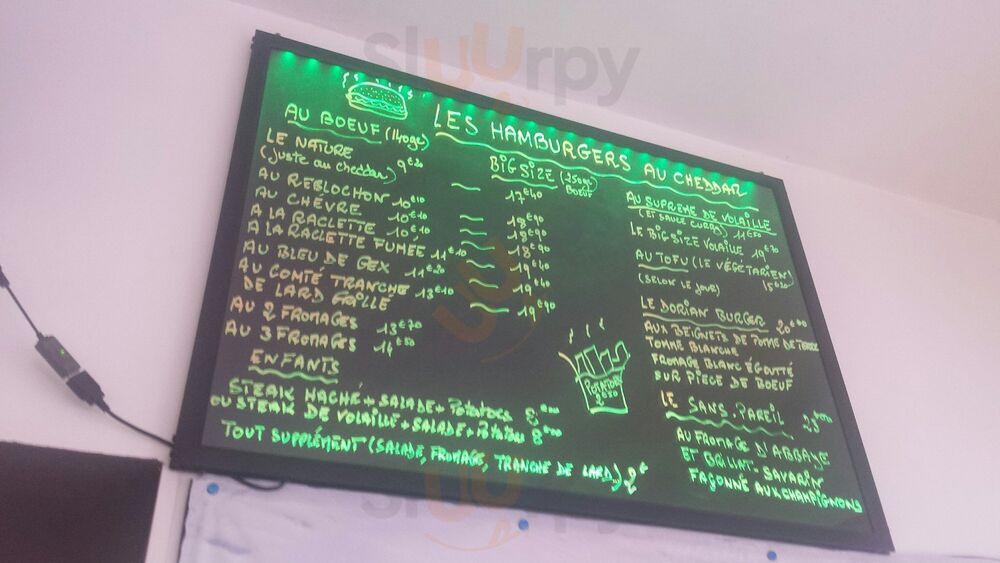 Slurpy
LES HAMBURGERS AU CHEDDAR
AU BOEUF (140gr)
LE NATURE
(juste au cheddar) 9€20
AU REBLOCHON 10€10
AU CHÈVRE 10€10
A LA RACLETTE 10€
A LA RACLETTE FUMÉE 11€10
AU BLEU DE GEX 11€20
AU COMTÉ TRANCHE
DE LARD GRILLÉ 13€10
AU 2 FROMAGES 13€70
AU 3 FROMAGES 14€50
BIG SIZE (250gr BOEUF)
17€40
18€90
18€90
18€90
19€40
19€40
19€90
ENFANTS
STEAK HACHÉ + SALADE + POTATOES 8€00
OU STEAK DE VOLAILLE + SALADE + POTATOES 8€00
TOUT SUPPLÉMENT (SALADE, FROMAGE, TRANCHE DE LARD) 2€
POTATOES
2€50
AU SUPREME DE VOLAILLE
(ET SAUCE CURRY) 11€50
LE BIG SIZE VOLAILLE 19€70
AU TOFU (LE VÉGETARIEN)
(SELON LE JOUR) 15€20
LE DORIAN BURGER 20€00
AUX BEIGNETS DE POMME DE TERRE
TOMME BLANCHE
FROMAGE BLANC ÉGOUTTÉ
SUR PIECE DE BOEUF
LE SANS-PAREIL 23€00
AU FROMAGE D'ABBAYE
ET BRILLAT-SAVARIN
FAÇONNÉ AUX CHAMPIGNONS
Slurpy